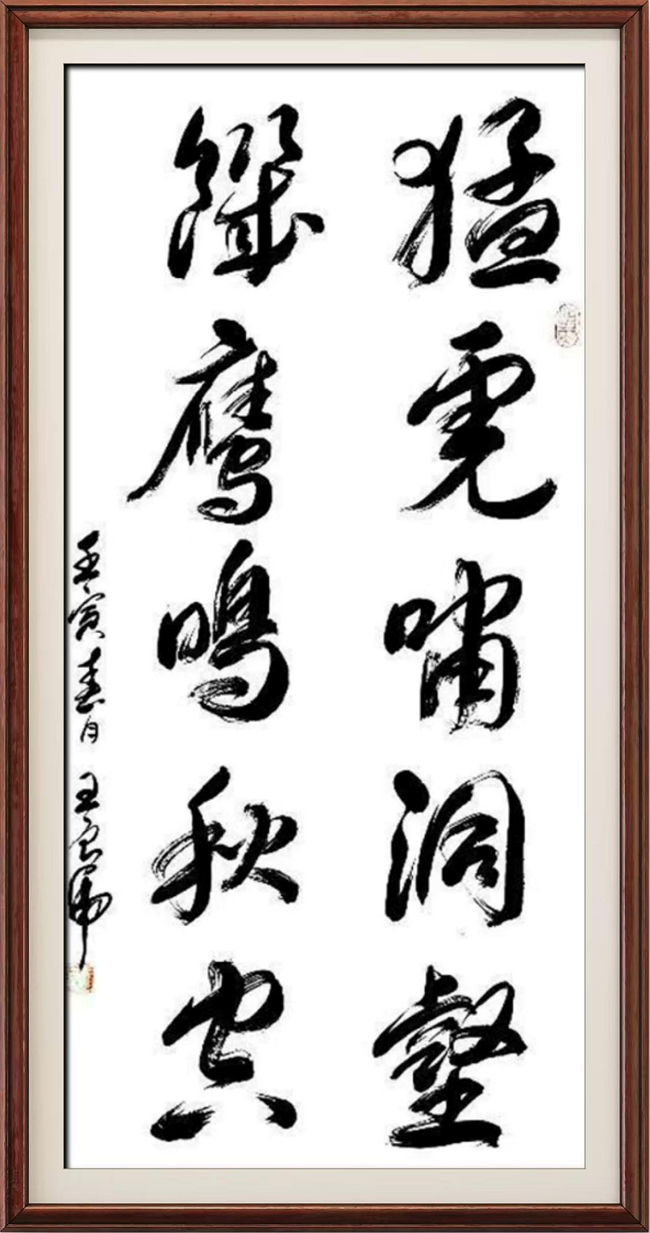 猛虎嘯洞壑
饑鷹鳴秋空
壬寅春月 王